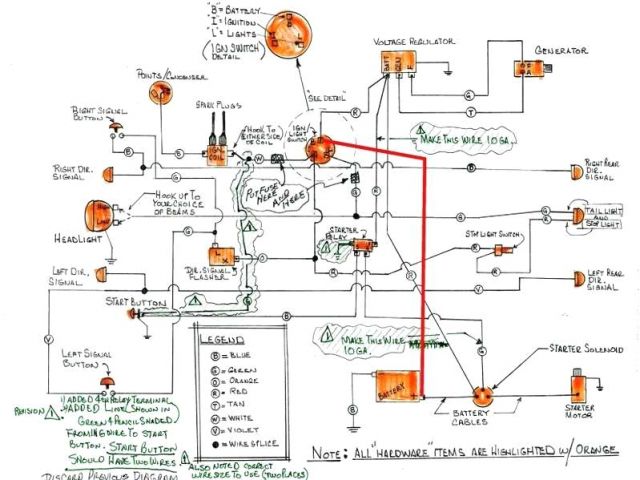 "B" = BATTERY
"I" = IGNITION
"L" = LIGHTS
(IGN SWITCH
DETAIL)
VOLTAGE REGULATOR
GENERATOR
BATT
GEN
F
POINTS/CONDENSER
"SEE DETAIL"
SPARK PLUGS
RIGHT SIGNAL
BUTTON
HOOK TO
EITHER SIDE
OF COIL
IGN
LIGHT
SWITCH
MAKE THIS WIRE 10 GA.
IGN.
COIL
RIGHT DIR.
SIGNAL
RIGHT REAR
DIR.
SIGNAL
PUT FUSE
HERE
AND
HERE
HOOK UP TO
YOUR CHOICE
OF BEAMS
HEADLIGHT
TAIL LIGHT
AND
STOP LIGHT
STARTER
RELAY
STOP LIGHT SWITCH
DIR. SIGNAL
FLASHER
LEFT DIR.
SIGNAL
LEFT REAR
DIR.
SIGNAL
START BUTTON
MAKE THIS WIRE
10 GA.
LEGEND
B = BLUE
G = GREEN
O = ORANGE
R = RED
T = TAN
W = WHITE
V = VIOLET
= WIRE SPLICE
LEFT SIGNAL
BUTTON
STARTER SOLENOID
BATTERY
BATTERY
CABLES
STARTER
MOTOR
REVISION
ADDED 4TH RELAY TERMINAL
ADDED LINE SHOWN IN
GREEN & PENCIL SHADED
FROM IGN WIRE TO START
BUTTON. START BUTTON
SHOULD HAVE TWO WIRES
DISCARD PREVIOUS DIAGRAM
ALSO NOTED CORRECT
WIRE SIZE TO USE (TWO PLACES)
NOTE: ALL "HARDWARE" ITEMS ARE HIGHLIGHTED W/ ORANGE